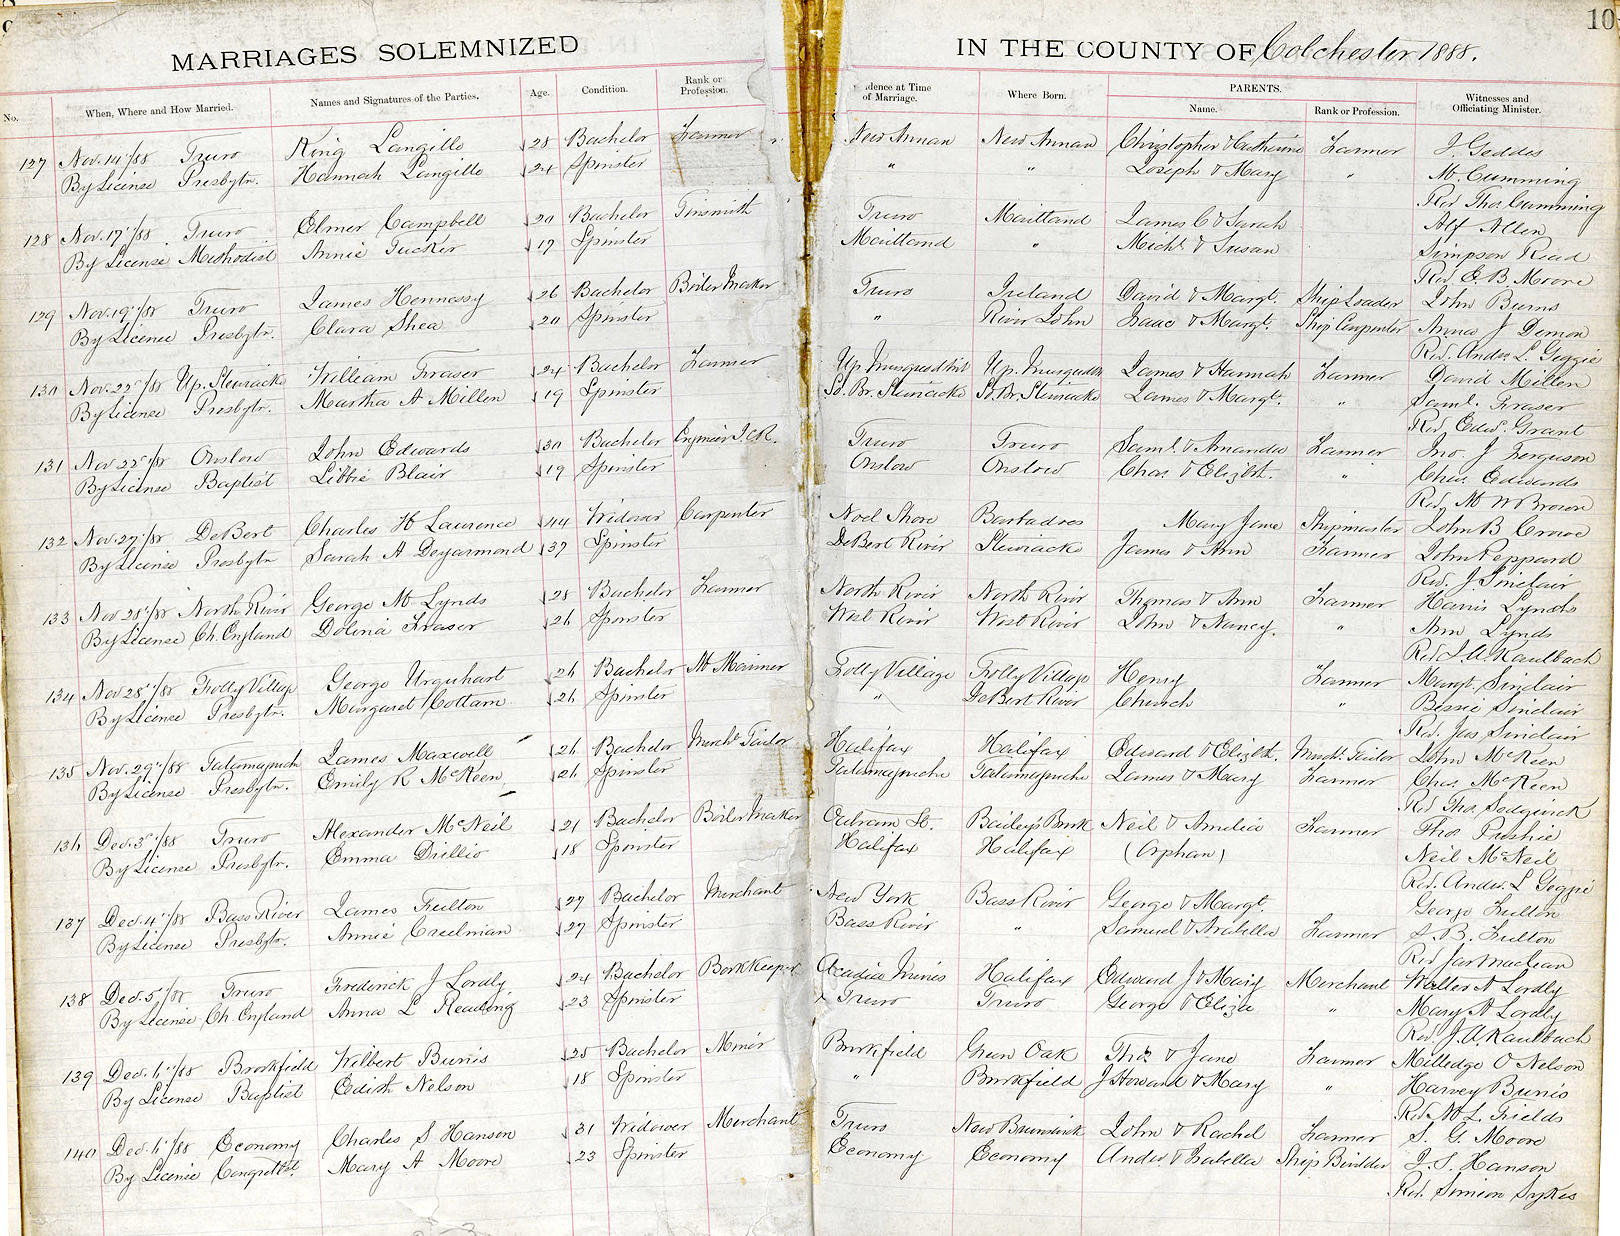 MARRIAGES SOLEMNIZED IN THE COUNTY OF Colchester 1888.
10
No. When, Where and How Married. Names and Signatures of the Parties. Age. Condition. Rank or Profession. dence at Time of Marriage. Where Born. PARENTS. Name. Rank or Profession. Witnesses and Officiating Minister.
127 Nov. 14"/88 Truro King Langille 28 Bachelor Farmer New Annan New Annan Christopher & Catherine Farmer J. Geddes
By License Presbytr. Hannah Langille 24 Spinster " " Joseph & Mary " M. Cumming
Rev Thos. Cumming
128 Nov. 17"/88 Truro Elmer Campbell 20 Bachelor Tinsmith Truro Maitland James C & Sarah Alf Allen
By License Methodist Annie Tucker 17 Spinster Maitland " Michl. & Susan Simpson Read
Rev. E. B. Moore
129 Nov. 19"/88 Truro James Hennessy 26 Bachelor Boiler Maker Truro Ireland David & Margt. Ship Loader John Burns
By License Presbytr. Clara Shea 20 Spinster " River John Isaac & Margt. Ship Carpenter Annie J Demon
Rev. Andw. L. Geggie
130 Nov. 22"/88 Up. Stewiacke William Fraser 24 Bachelor Farmer Up Musquodbit Up. Musquodbt James & Hannah Farmer David Millen
By License Presbytr. Martha A Millen 19 Spinster So. Br. Stewiacke So. Br. Stewiacke James & Margt. " Saml. Fraser
Rev. Edwd. Grant
131 Nov 22"/88 Onslow John Edwards 30 Bachelor Engineer I.C.R. Truro Truro Saml. & Amanda Farmer Jno. J Ferguson
By License Baptist Libbie Blair 19 Spinster Onslow Onslow Chas. & Elizbth. " Chas. Edwards
Rev. M W Brown
132 Nov. 27"/88 DeBert Charles H Laurence 44 Widower Carpenter Noel Shore Barbadoes Mary Jane Shipmaster John B Crowe
By License Presbytr Sarah A Deyarmond 37 Spinster DeBert River Stewiacke James & Ann Farmer John Peppard
Rev. J. Sinclair
133 Nov 28"/88 North River George M Lynds 28 Bachelor Farmer North River North River Thomas & Ann Farmer Harris Lynds
By License Ch. England Dolina Fraser 26 Spinster West River West River John & Nancy. " Ann Lynds
Rev. J. A. Kaulbach
134 Nov 28"/88 Folly Village George Urquhart 26 Bachelor M Mariner Folly Village Folly Village Henry Farmer Margt. Sinclair
By License Presbytr. Margaret Cottam 26 Spinster " DeBert River Church " Bessie Sinclair
Rev. Jas. Sinclair
135 Nov. 29"/88 Tatamagouche James Maxwell 26 Bachelor Mercht. Tailor Halifax Halifax Edward & Elizbth. Mercht. Tailor John McKeen
By License Presbytr. Emily R McKeen 26 Spinster Tatamagouche Tatamagouche James & Mary Farmer Chas. McKeen
Rev Thos. Sedgwick
136 Dec. 3"/88 Truro Alexander McNeil 21 Bachelor Boiler Maker Outram St. Bailey's Brook Neil & Amelia Farmer Thos Pushie
By License Presbytr. Emma Drillio 18 Spinster Halifax Halifax (Orphan) Neil McNeil
Rev. Andw. L Geggie
137 Dec. 4"/88 Bass River James Fulton 27 Bachelor Merchant New York Bass River George & Margt. George Fulton
By License Presbytr. Annie Creelman 27 Spinster Bass River " Samuel & Arabella Farmer S. B. Fulton
Rev Jas Maclean
138 Dec. 5"/88 Truro Frederick J Lordly 24 Bachelor Bookkeeper Acadia Mines Halifax Edward J & Mary Merchant Walter A Lordly
By License Ch. England Anna L Reading 23 Spinster Truro Truro George & Eliza " Mary A Lordly
Rev. J. A. Kaulbach
139 Dec. 6"/88 Brookfield Wilbert Burris 25 Bachelor Miner Brookfield Green Oak Thos. & Jane Farmer Milledge O Nelson
By License Baptist Edith Nelson 18 Spinster " Brookfield J Howard & Mary " Harvey Burris
Rev. M. L. Fields
140 Dec. 6"/88 Economy Charles S Hanson 31 Widower Merchant Truro New Brunswick John & Rachel Farmer S. G. Moore
By License Congretnl. Mary A Moore 23 Spinster Economy Economy Andw & Isabella Ship Builder J. S. Hanson
Rev. Simeon Sykes